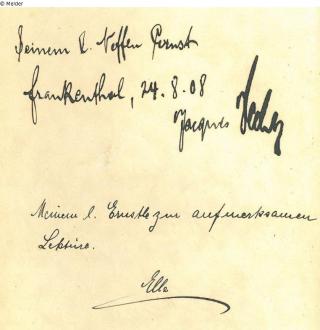 © Melder
Seinem l. Neffen Ernst
Frankenthal, 24.8.08
Jacques
Meinem l. Ernstle zur aufmerksamen
Lektüre.
Elle